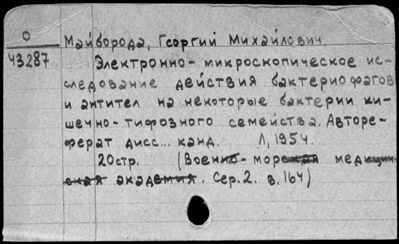 О
Майборода, Георгий Михайлович.
43287
Электронно-микроскопическое ис-
следование действия бактериофагов
и антител на некоторые бактерии ки-
шечно-тифозного семейства. Авторе-
ферат дисс... канд. Л, 1954.
20стр. (Военно-морская медицин-
ская академия. Сер. 2. в. 164)